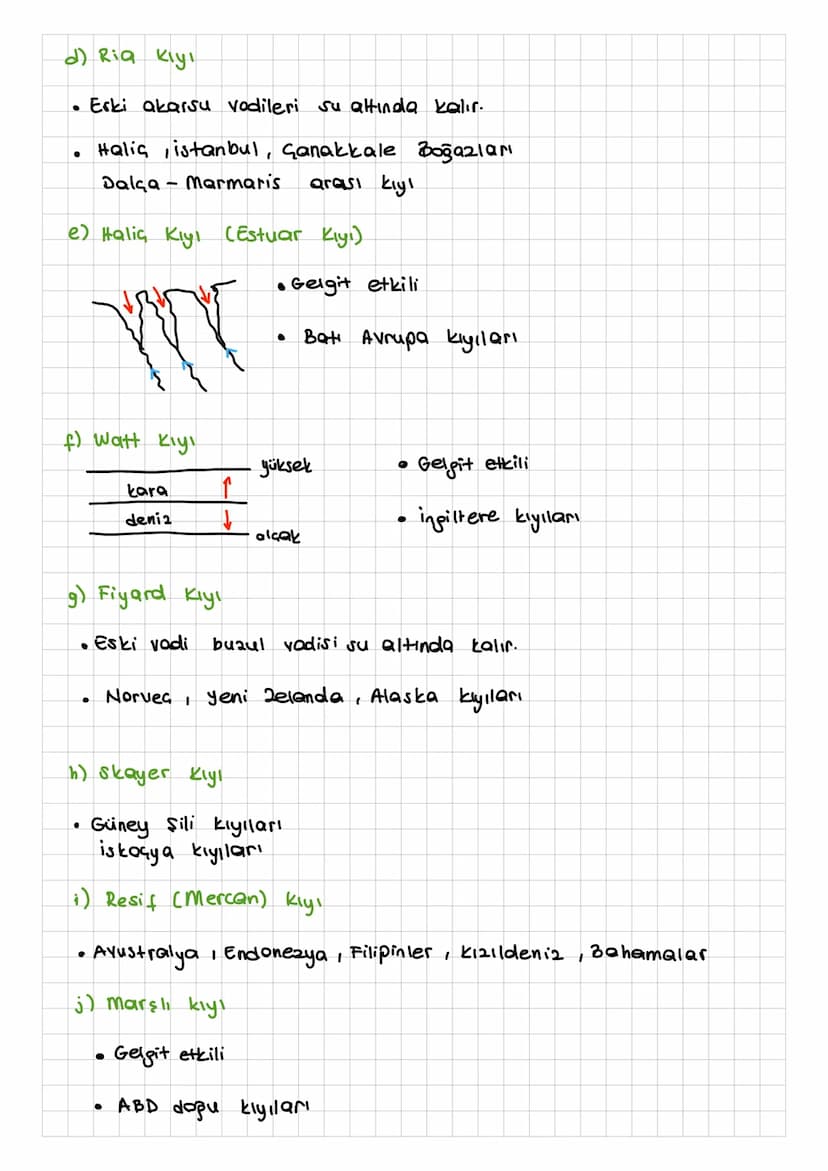 d) Ria Kıyı
• Eski akarsu vadileri su altında kalır.
• Haliç, istanbul, Çanakkale Boğazları
Dalça - Marmaris arası kıyı
e) Haliç Kıyı (Estuar Kıyı)
• Gelgit etkili
• Batı Avrupa kıyıları
f) Watt Kıyı
yüksek
kara
deniz
alçak
• Gelgit etkili
• ingiltere kıyıları
g) Fiyard Kıyı
• Eski vadi buzul vadisi su altında kalır.
• Norveç, yeni Zelanda, Alaska kıyıları
h) Skayer Kıyı
• Güney Şili kıyıları
iskoçya kıyıları
i) Resif (Mercan) Kıyı
• Avustralya, Endonezya, Filipinler, kızıldeniz, Bahamalar
j) Marşlı kıyı
• Gelgit etkili
• ABD doğu kıyıları